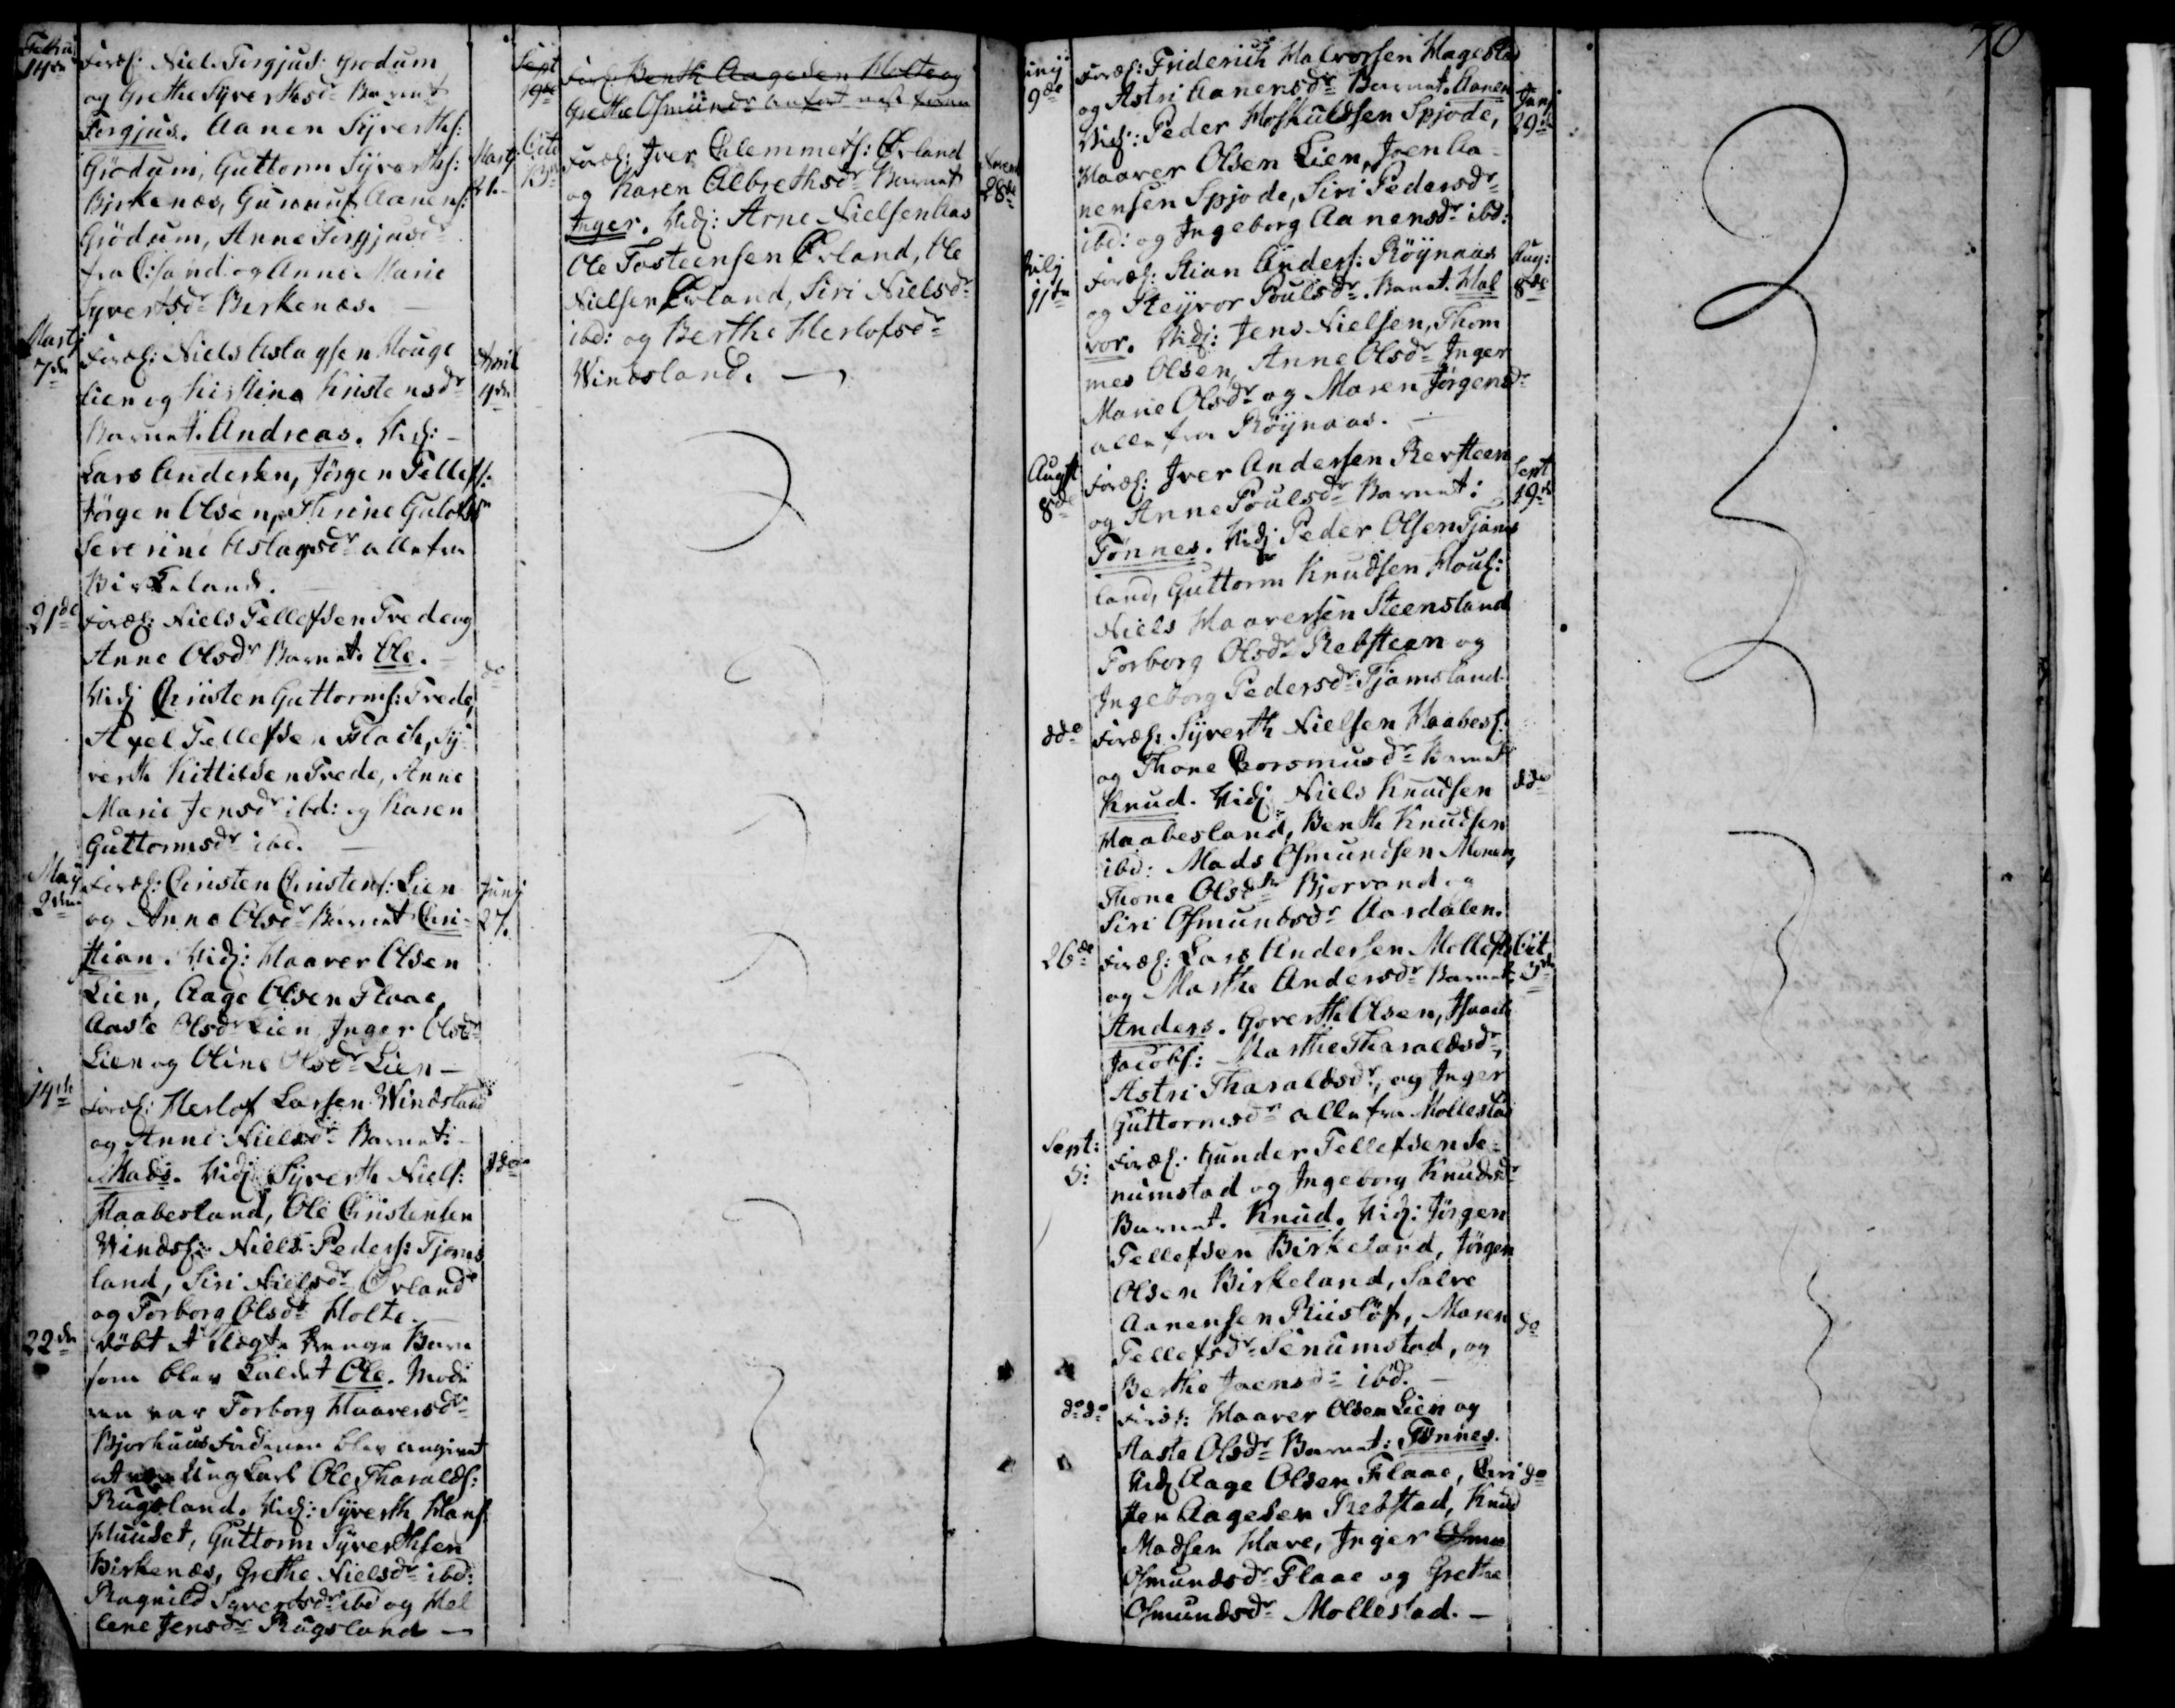 70
Febru
14de
Foræl: Niels Tergjus: Grødum
og Grethe Syverthsdr Barnet
Tergjus. Aanen Syverths:
Grødum, Guttorm Syverths:
Birkenæs, Gunnuf Aanens:
Grødum, Anne Tergjusdr
fra C:sand og Anne Marie
Syvertsdr Berkenæs. —
Martj
7de
Foræl: Niels Aslagsen Mouge
lien og Kirstine Kristensdr
Barnet. Andreas. Vidj: —
Lars Andersen, Jørgen Tellefs:
Jørgen Olsen, Thrine
Severine Aslagsdr alle fra
Birkeland.
April
9de
21de
Foræl: Niels Tellefsen Trede og
Anne Olsdr Barnet. Ole. —
Vidj Christen Guttorms: Trede,
Axel Tellefsen Flach, Sy-
verth Kittilsen Trede, Anne
Marie Jensdr ibd: og Karen
Guttormsdr ibd. —
do
May
2den
Foræl: Christen Christens: Lien
og Anne Olsdr Barnet Chri-
stian. Vidj: Haaver Olsen
Lien, Aage Olsen Flaae,
Aaste Olsdr Lien, Inger Olsdr
Lien og Oline Olsdr Lien —
Junj
27.
14de
Foræl: Herlof Larsen Windsland
og Anne Nielsdr Barnet: —
Mads. Vidj Syverth Niels:
Haabesland, Ole Christensen
Windsl: Niels Peders: Tjoms
land, Siri Nielsdr Øvland
og Torborg Olsdr Holte. —
ddo
22de
Døbt et Uægte Drenge Barn
som blev kaldet Ole. Mode
ren var Torborg Haaversdr
Bjorhuus Faderen blev angivet
at være Ung Karl Ole Tharalds:
Rugsland. Vidj: Syverth Hans:
Huuset, Guttorm Syverthsen
Birkenæs, Grethe Nielsdr ibd:
Ragnild Syvertsdr ibd og Hel
lene Jensdr Rugsland —
Sept
19de
Foræl Benth Aagesen Holte og
Grethe Osmunds anført næst foran
Octb
13de
Foræl: Iver Clemmets: Øvland
og Karen Albrethsdr Barnet
Inger. Vidj: Arne Nielsen Aas
Ole Tosteensen Øvland, Ole
Nielsen Øvland, Siri Nielsdr
ibd: og Berthe Herlofsdr
Windsland. —
28de
Junij
9de
Foræl: Friderich Halvorsen Hagestad
og Astri Aanensdr Barnet. Aanen
Vidj: Peder Hoskuldsen Spjode,
Haaver Olsen Lien, Joen Aa-
nensen Spjode, Siri Pedersdr
ibd: og Ingeborg Aanensdr ibd:
Junj
29de
Julj
11te
Foræl: Stian Anders: Røynaas
og Steyvor Poulsdr. Barnet. Hal
vor. Vidj: Jens Nielsen, Thom
mes Olsen, Anne Olsdr Inger
Marie Olsdr og Maren Jørgensdr
alle fra Røynaas. —
Aug:
8de
Augst
8de
Foræl: Iver Andersen Revsteen
og Anne Poulsdr Barnet:
Tønnes. Vidj Peder Olsen Tjoms
land, Guttorm Knudsen Housl:
Niels Haaversen Steensland
Torborg Olsdr Rebsteen og
Ingeborg Pedersdr Tjomsland
Sept
19de
ddo
Foræl: Syverth Nielsen Haabesl:
og Thone Gorsmusdr Barnet
Knud. Vidj Niels Knudsen
Haabesland, Benth Knudsen
ibd: Mads Osmundsen Monen,
Thone Olsdr Bjorvand og
Siri Osmundsdr Aasdalen.
ddo
26de
Foræl: Lars Andersen Mollest
og Marthe Andersdr Barnet.
Anders. Goverth Olsen, Isaach
Jacobs: Marthe Tharaldsdr,
Astri Tharaldsdr, og Inger
Guttormsdr alle fra Mollestad
Oct
3de
Sept:
5:
Foræl: Gunder Tellefsen Se-
numstad og Ingeborg Knudsdr
Barnet. Knud. Vidj: Jørgen
Tellefsen Birkeland, Jørgen
Olsen Birkeland, Salve
Aanensen Riisløf, Maren
Tellefsdr Senumstad, og
Berthe Joensdr ibd. —
do
dodo
Foræl: Haaver Olsen Lien og
Aaste Olsdr Barnet: Tønnes.
Vidj Aage Olsen Flaae, Chri
sten Aagesen Rebstad, Knud
Madsen Have, Inger Osmun
Osmundsdr Flaae og Grethe
Osmundsdr Mollestad. —
do